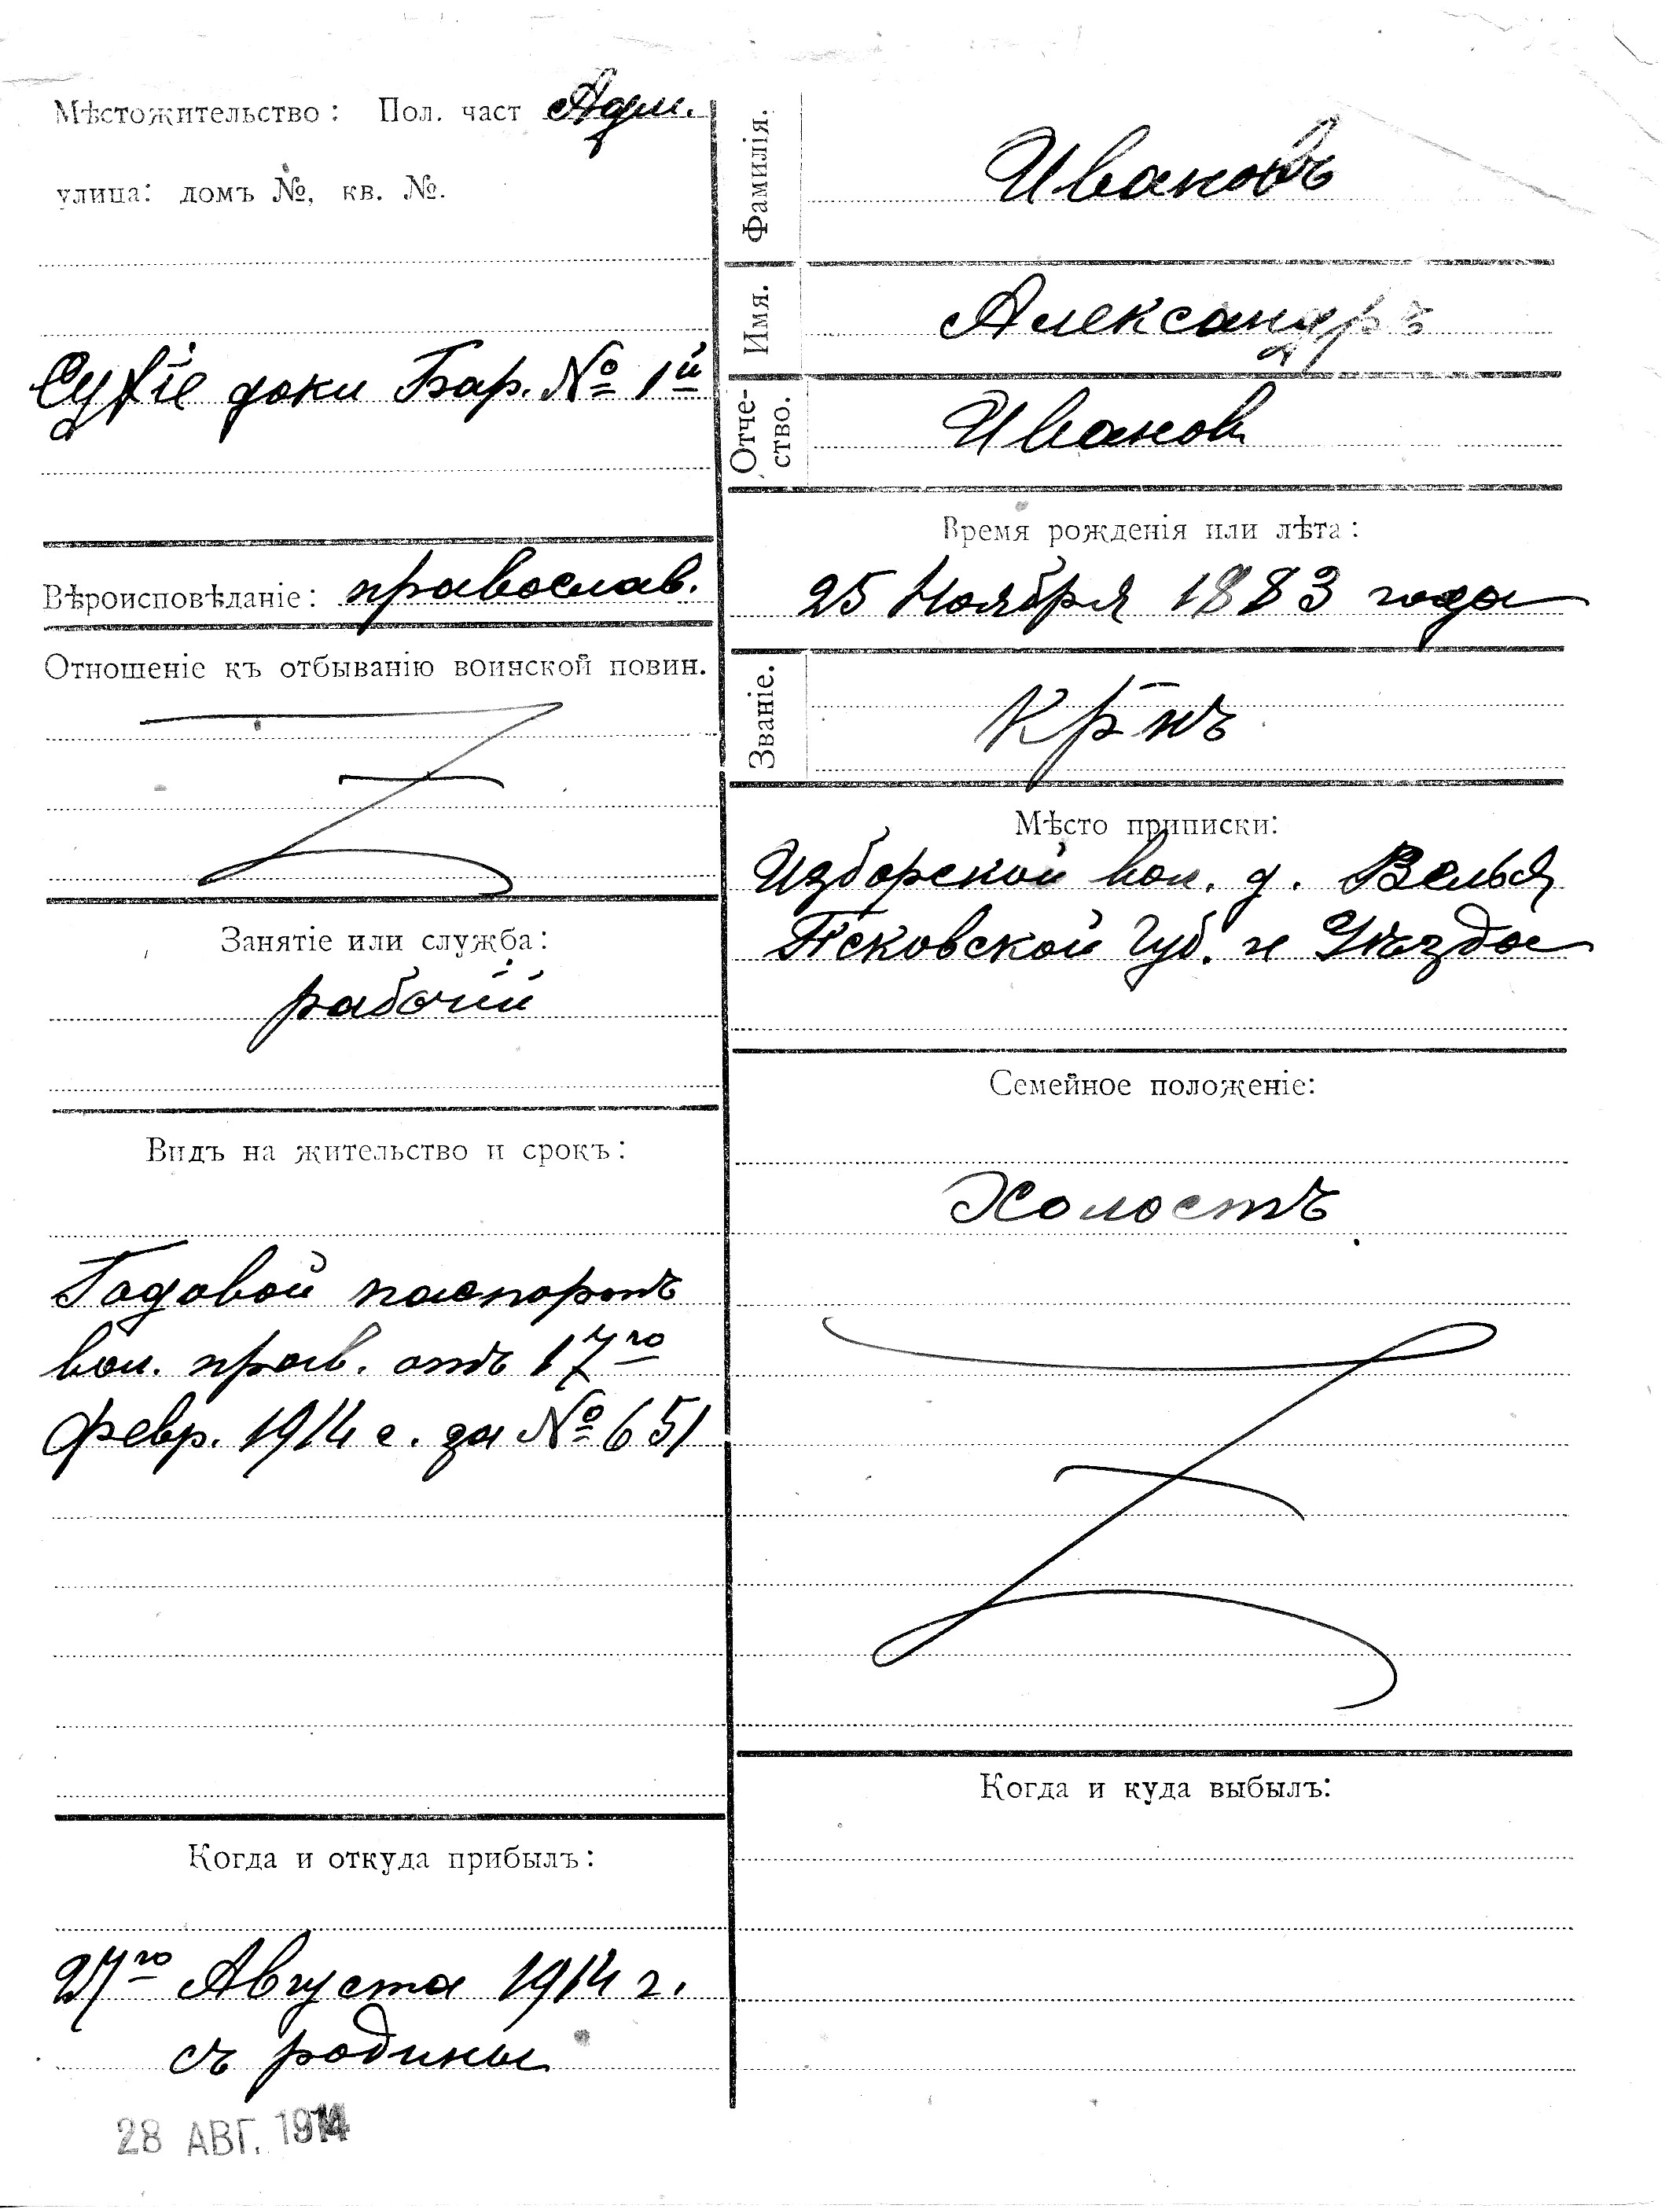 Мѣстожительство: Пол. част Адм.
улица: домъ №, кв. №.
Сухіе доки Бар. № 1й
Вѣроисповѣданіе: православ.
Отношеніе къ отбыванію воинской повин.
Занятіе или служба:
рабочій
Видъ на жительство и срокъ:
Годовой паспортъ
вол. прав. отъ 17го
февр. 1914 г. за № 651
Когда и откуда прибылъ:
27го Августа 1914 г.
съ родины
28 АВГ. 1914
Фамилія.
Ивановъ
Имя.
Александръ
Отче-
ство.
Иванов
Время рожденія или лѣта:
25 Ноября 1883 года
Званіе.
Кр-нъ
Мѣсто приписки:
Изборской вол. д. Велья
Псковской Губ. и Уѣзда
Семейное положеніе:
Холостъ
Когда и куда выбылъ: